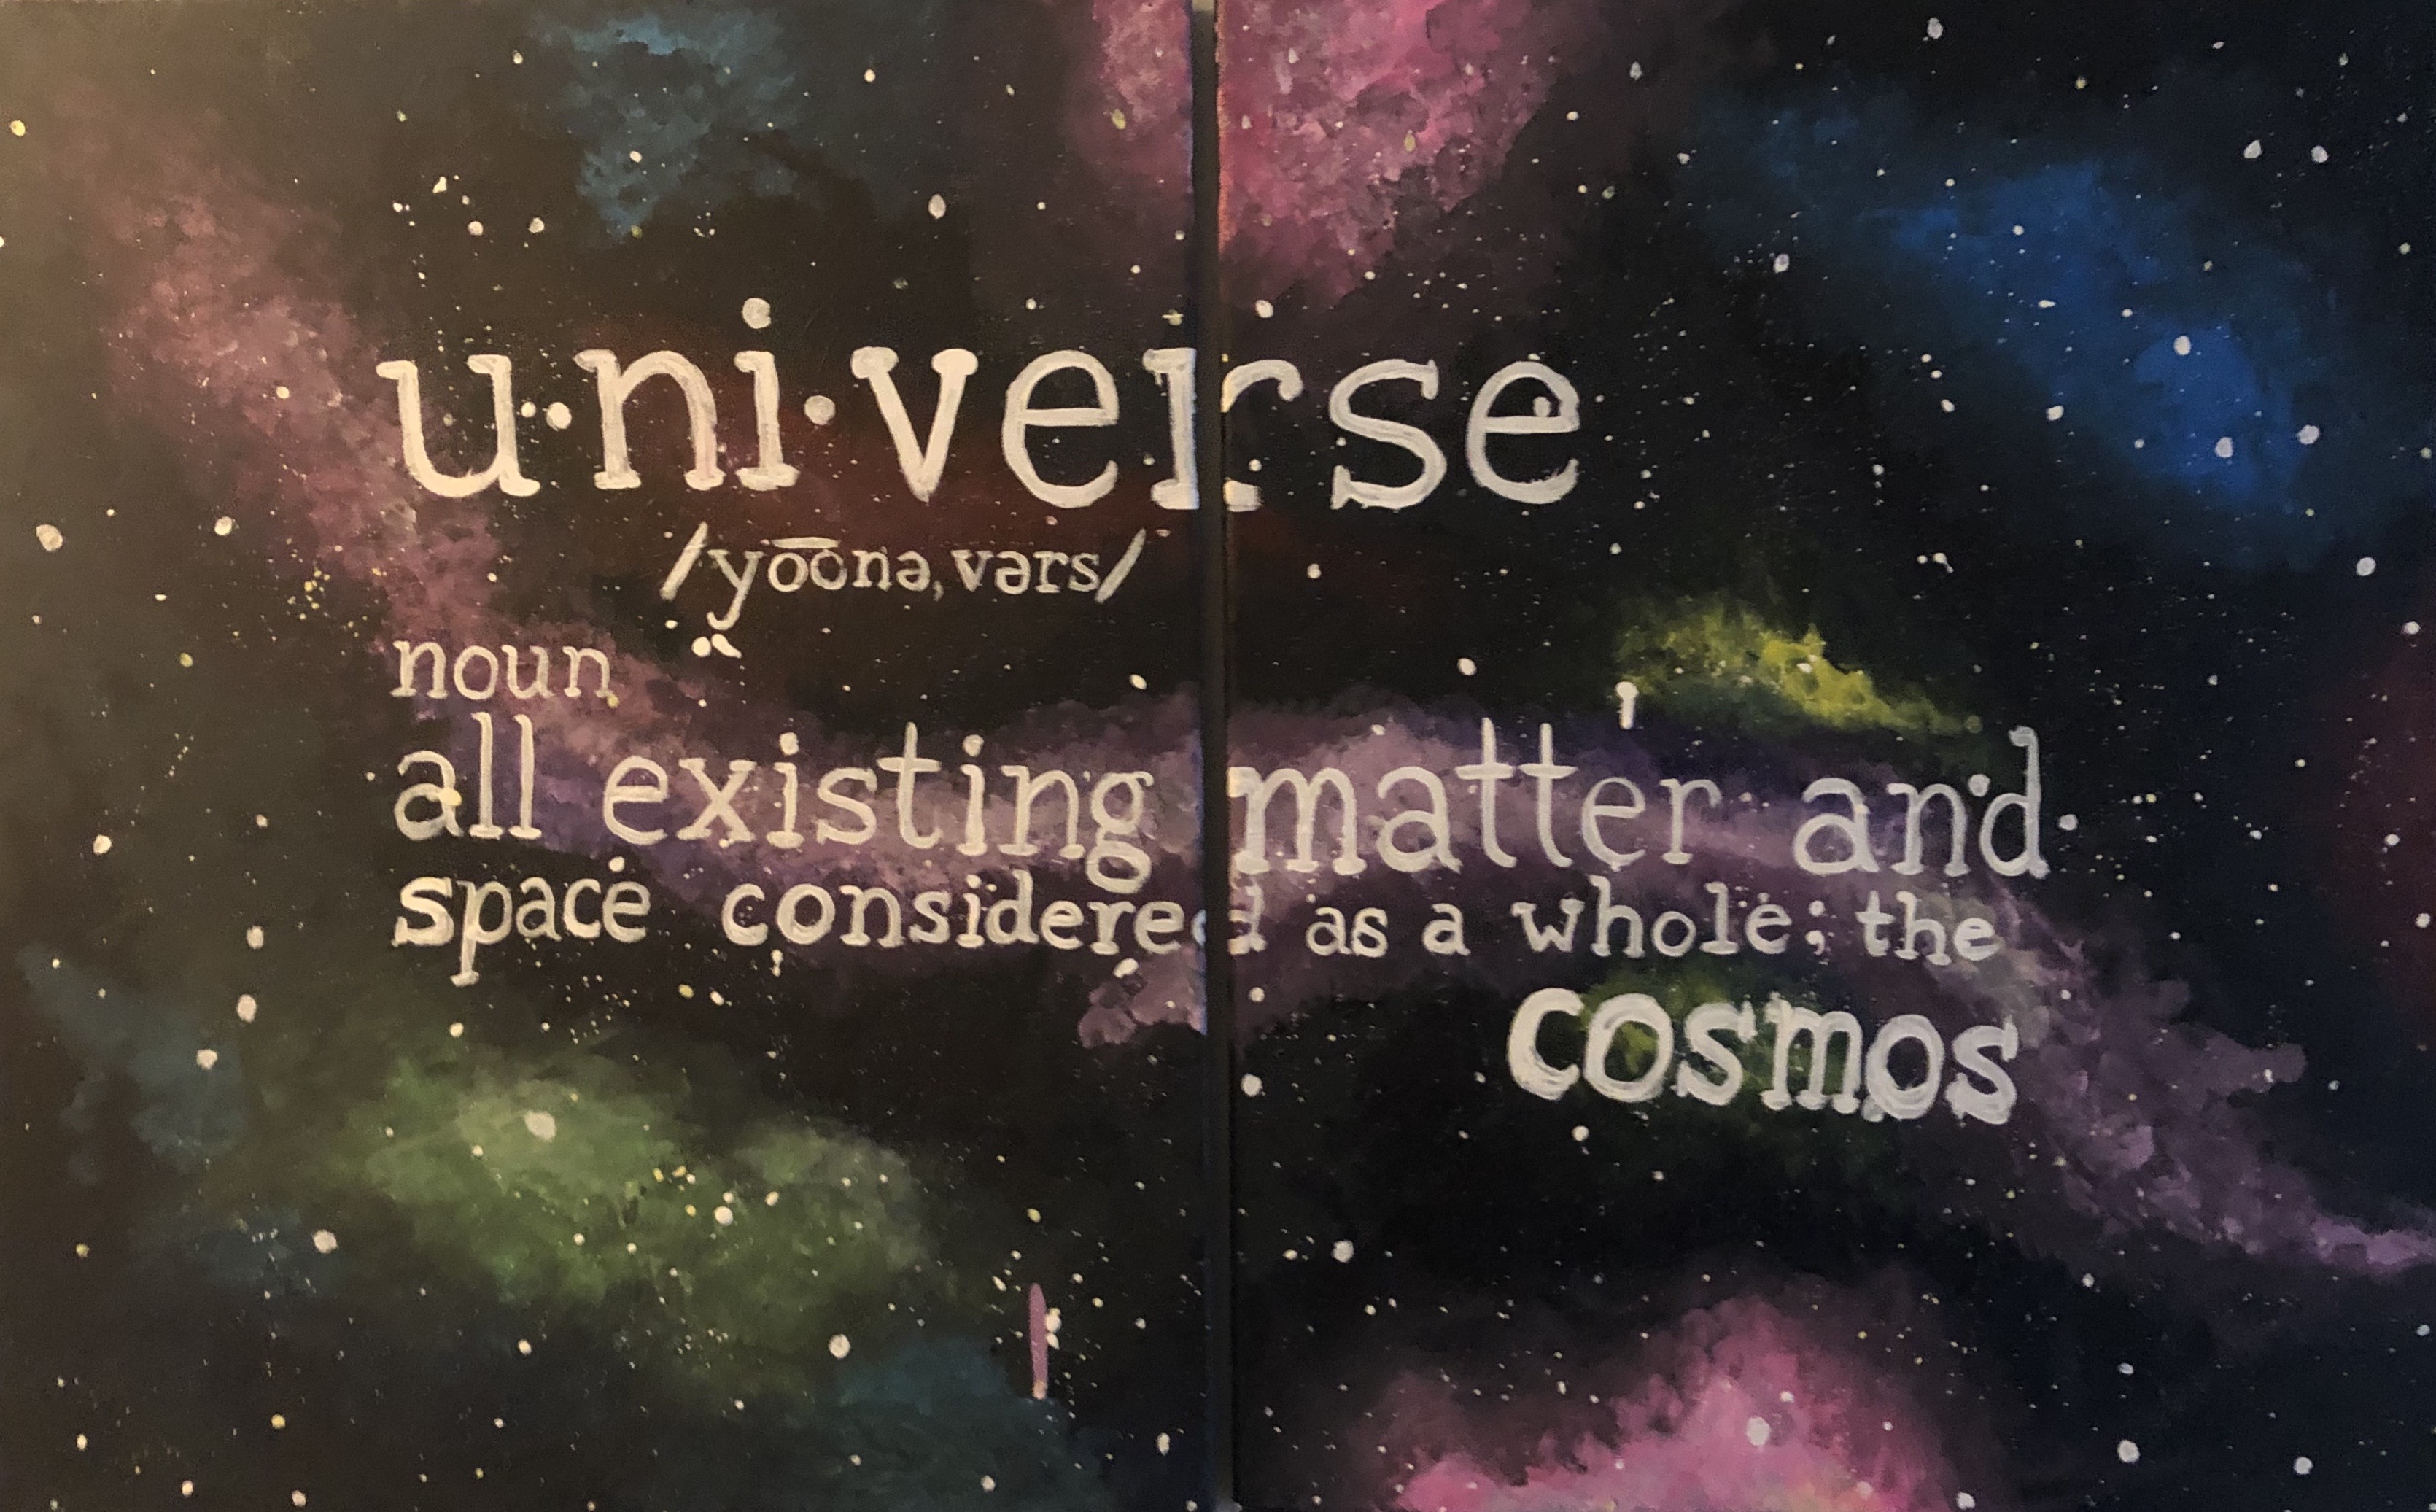 u·ni·verse
/yo͞onə,vərs/
noun
all existing matter and
space considered as a whole; the
cosmos